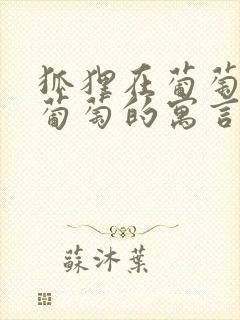 狐狸在葡萄
葡萄的寓言
蘇沐葉